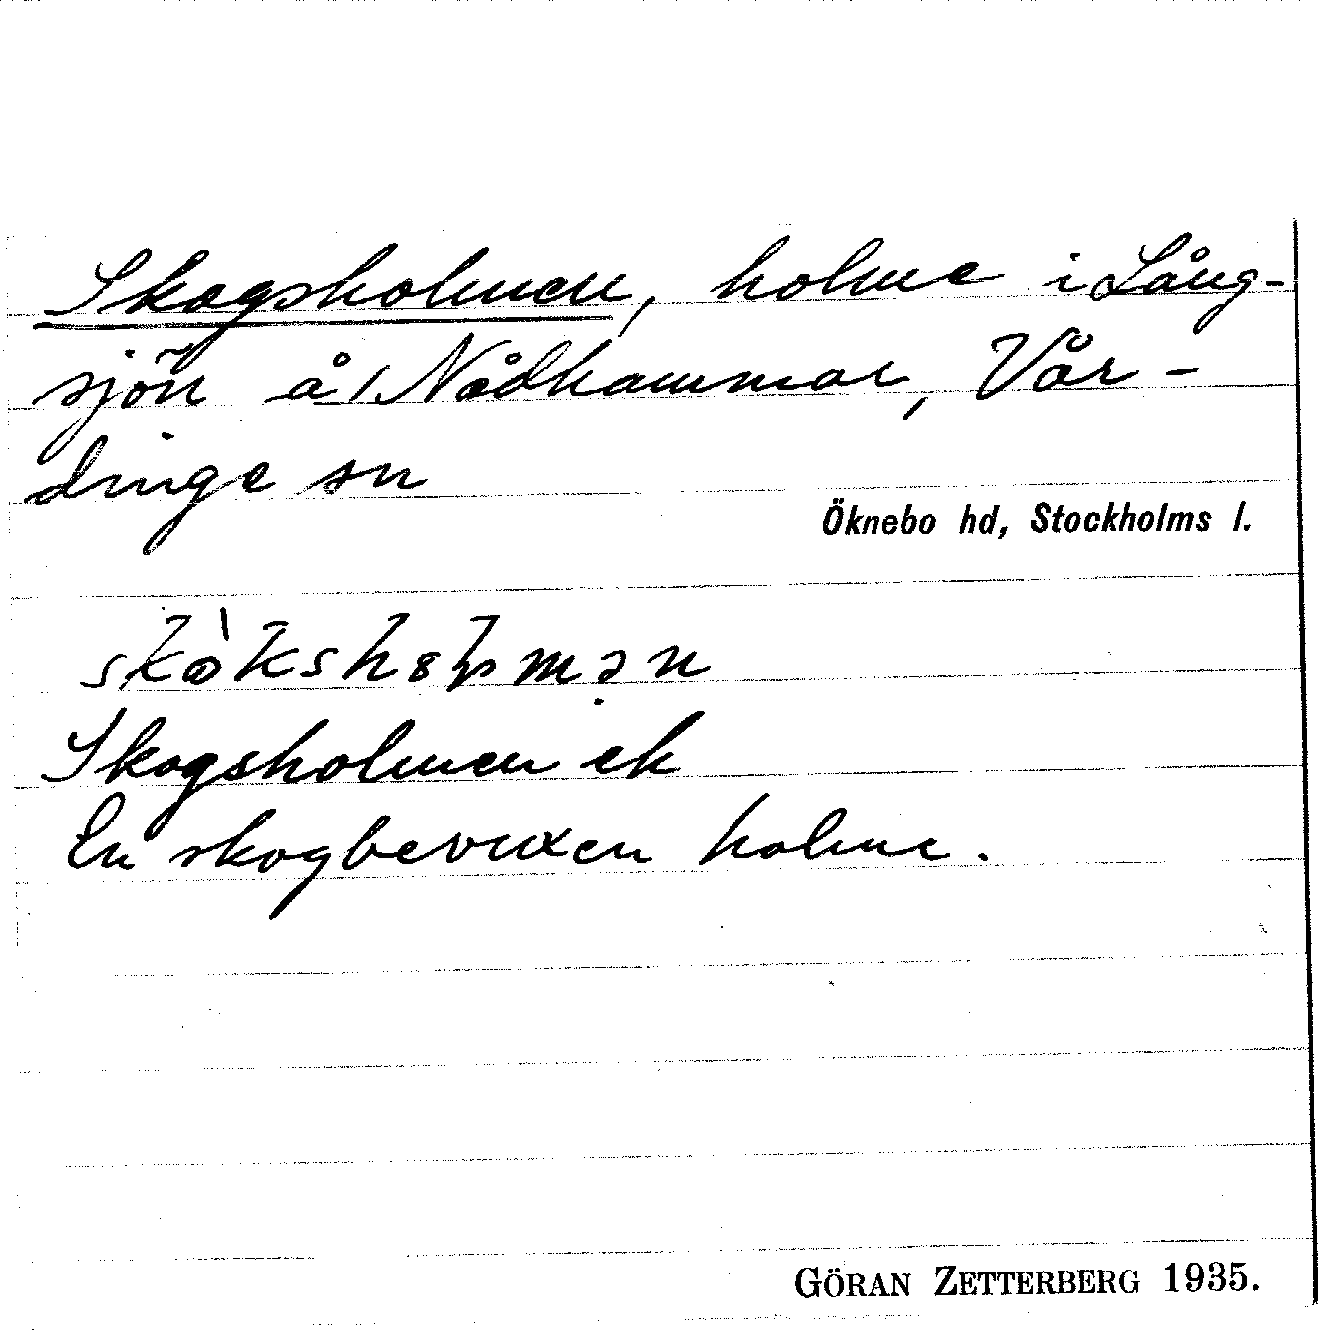 Skogsholmen, holme i Lång-
sjön å Nådhammar, Vår-
dinge sn
Öknebo hd, Stockholms l.
Skogsholmen ek
En skogbevuxen holme.
GÖRAN ZETTERBERG 1935.